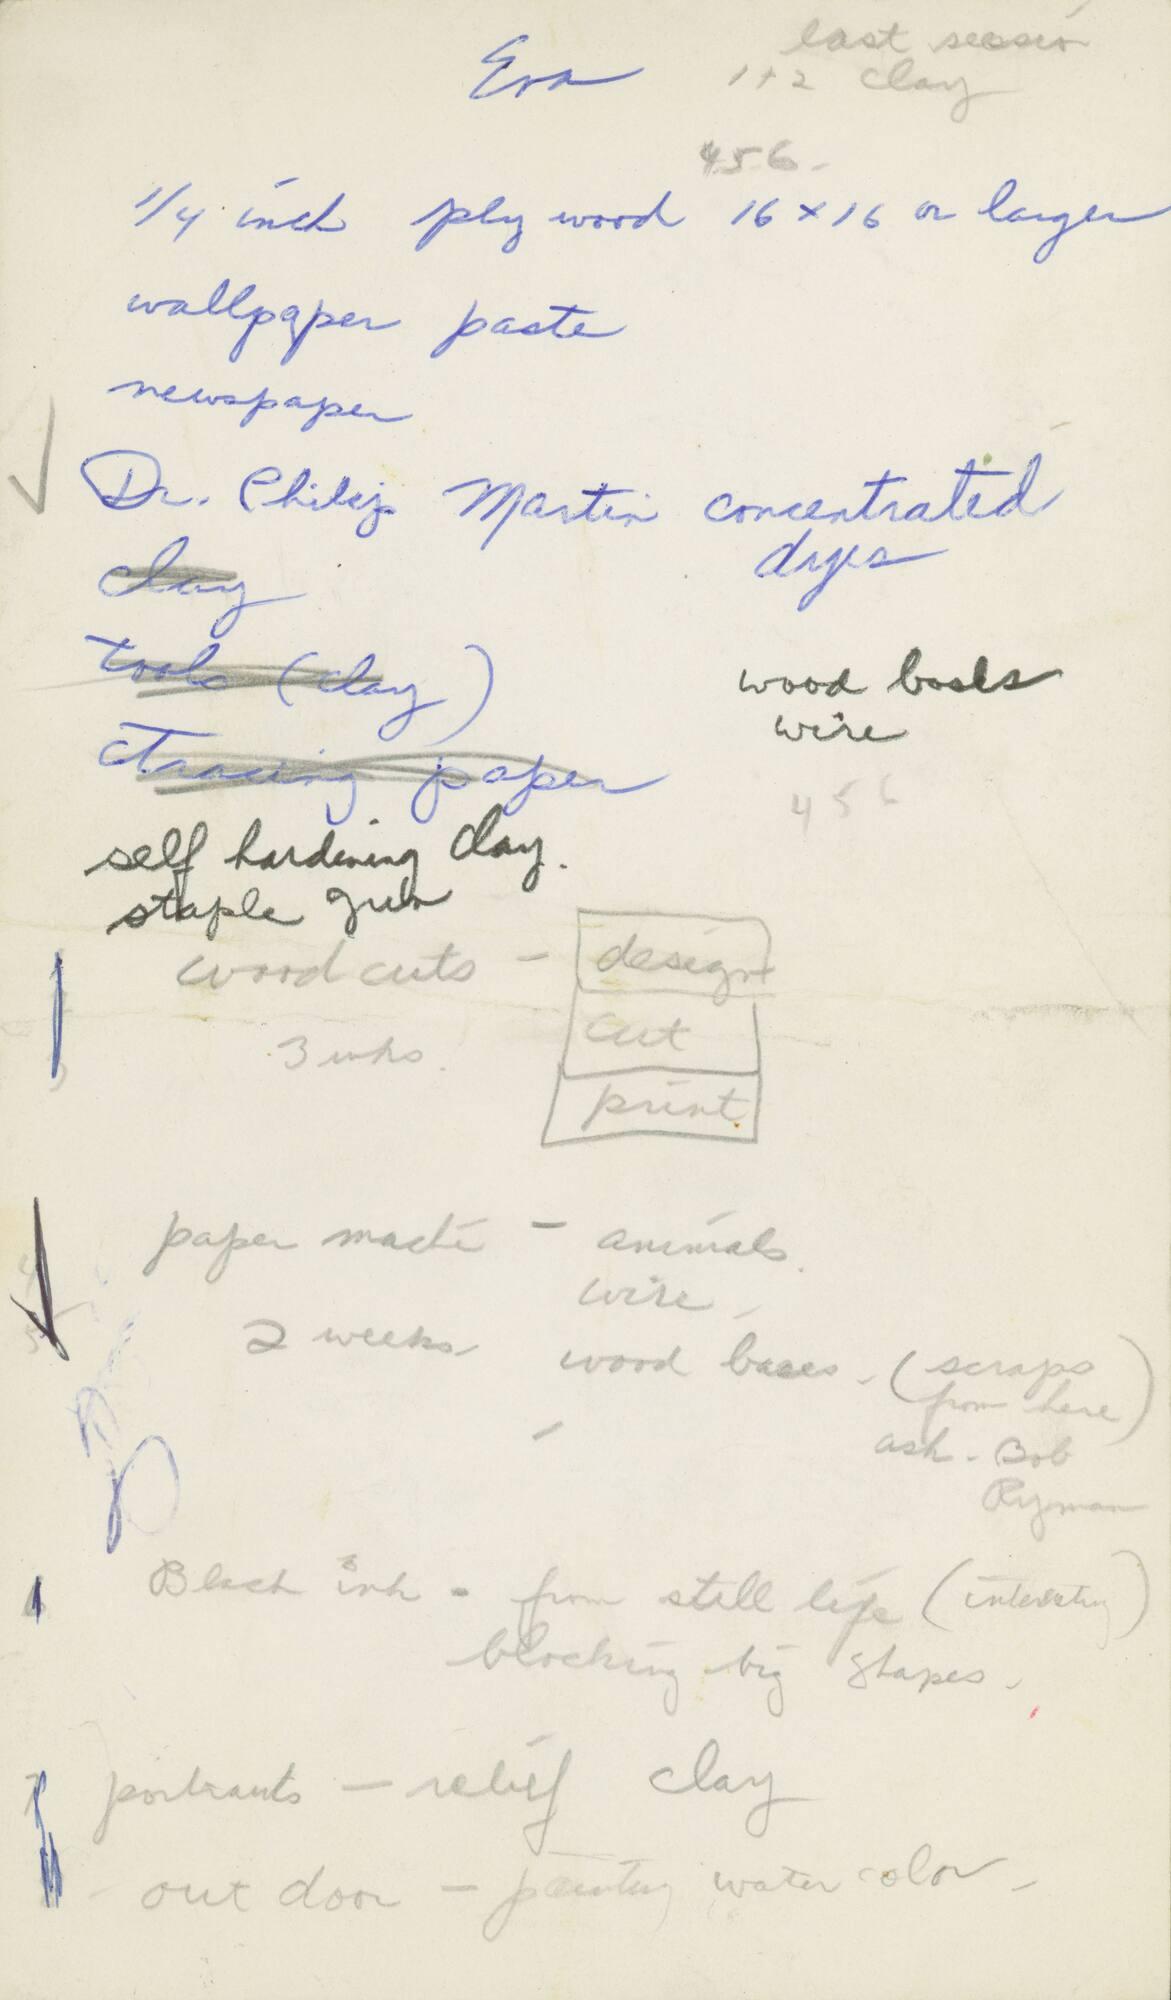 last session
Eva
1+2 clay
456-
1/4 inch plywood 16 x 16 or larger
wallpaper paste
newspaper
Dr. Philip Martin concentrated
dyes
clay
tools (clay)
wood bases
wire
tracing paper
456
self hardening clay.
staple gun
wood cuts - design
cut
3 wks.
print
paper maché - animals.
wire -
2 weeks
wood bases - (scraps
from here)
ask - Bob
Ryman
Black ink - from still life (interesting)
blocking big shapes -
7
portraits - relief clay
out door - painting water color -